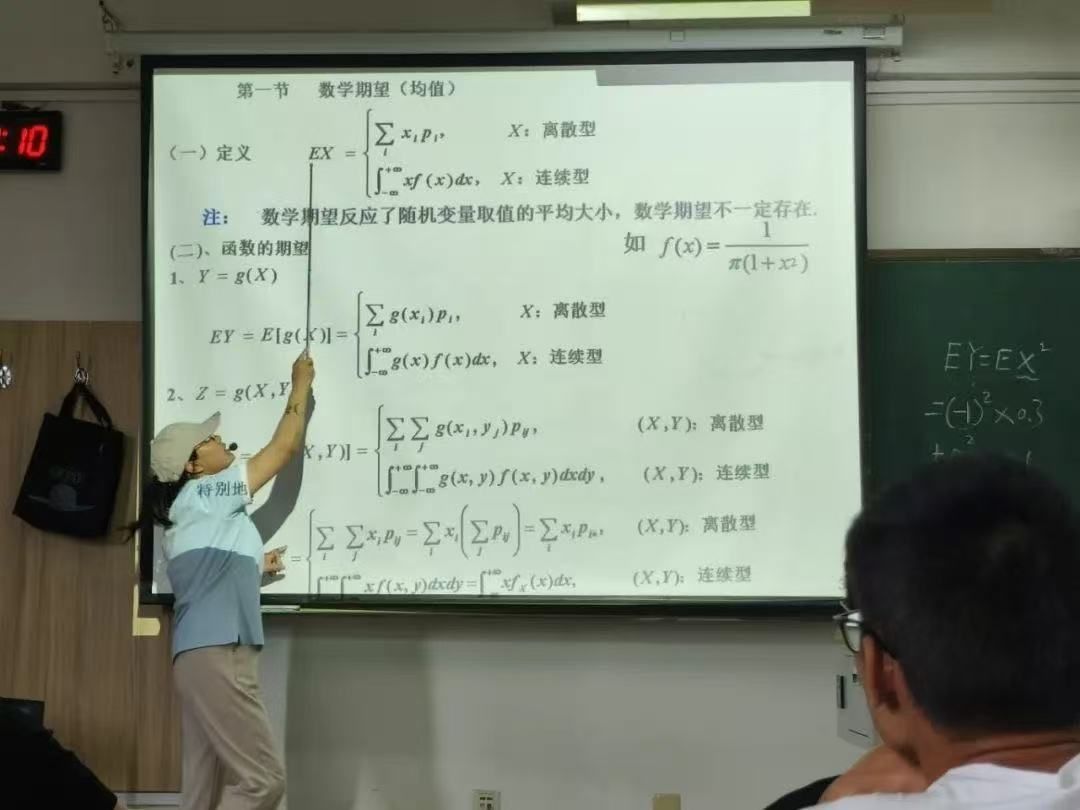 第一节 数学期望（均值）
（一）定义 EX = { ∑_i x_i p_i, X：离散型
∫_{-∞}^{+∞} xf(x)dx, X：连续型
注： 数学期望反应了随机变量取值的平均大小，数学期望不一定存在.
(二)、函数的期望
如 f(x) = 1 / π(1+x²)
1、Y = g(X)
EY = E[g(X)] = { ∑_i g(x_i)p_i, X：离散型
∫_{-∞}^{+∞} g(x)f(x)dx, X：连续型
2、Z = g(X,Y
X,Y)] = { ∑_i ∑_j g(x_i,y_j)p_ij, (X,Y)：离散型
∫_{-∞}^{+∞} ∫_{-∞}^{+∞} g(x,y)f(x,y)dxdy, (X,Y)：连续型
= { ∑_i ∑_j x_i p_ij = ∑_i x_i (∑_j p_ij) = ∑_i x_i p_i•, (X,Y)：离散型
∫∫ xf(x,y)dxdy = ∫ xf_X(x)dx, (X,Y)：连续型
:10
特别地
EY=EX²
=(-1)²×0.3